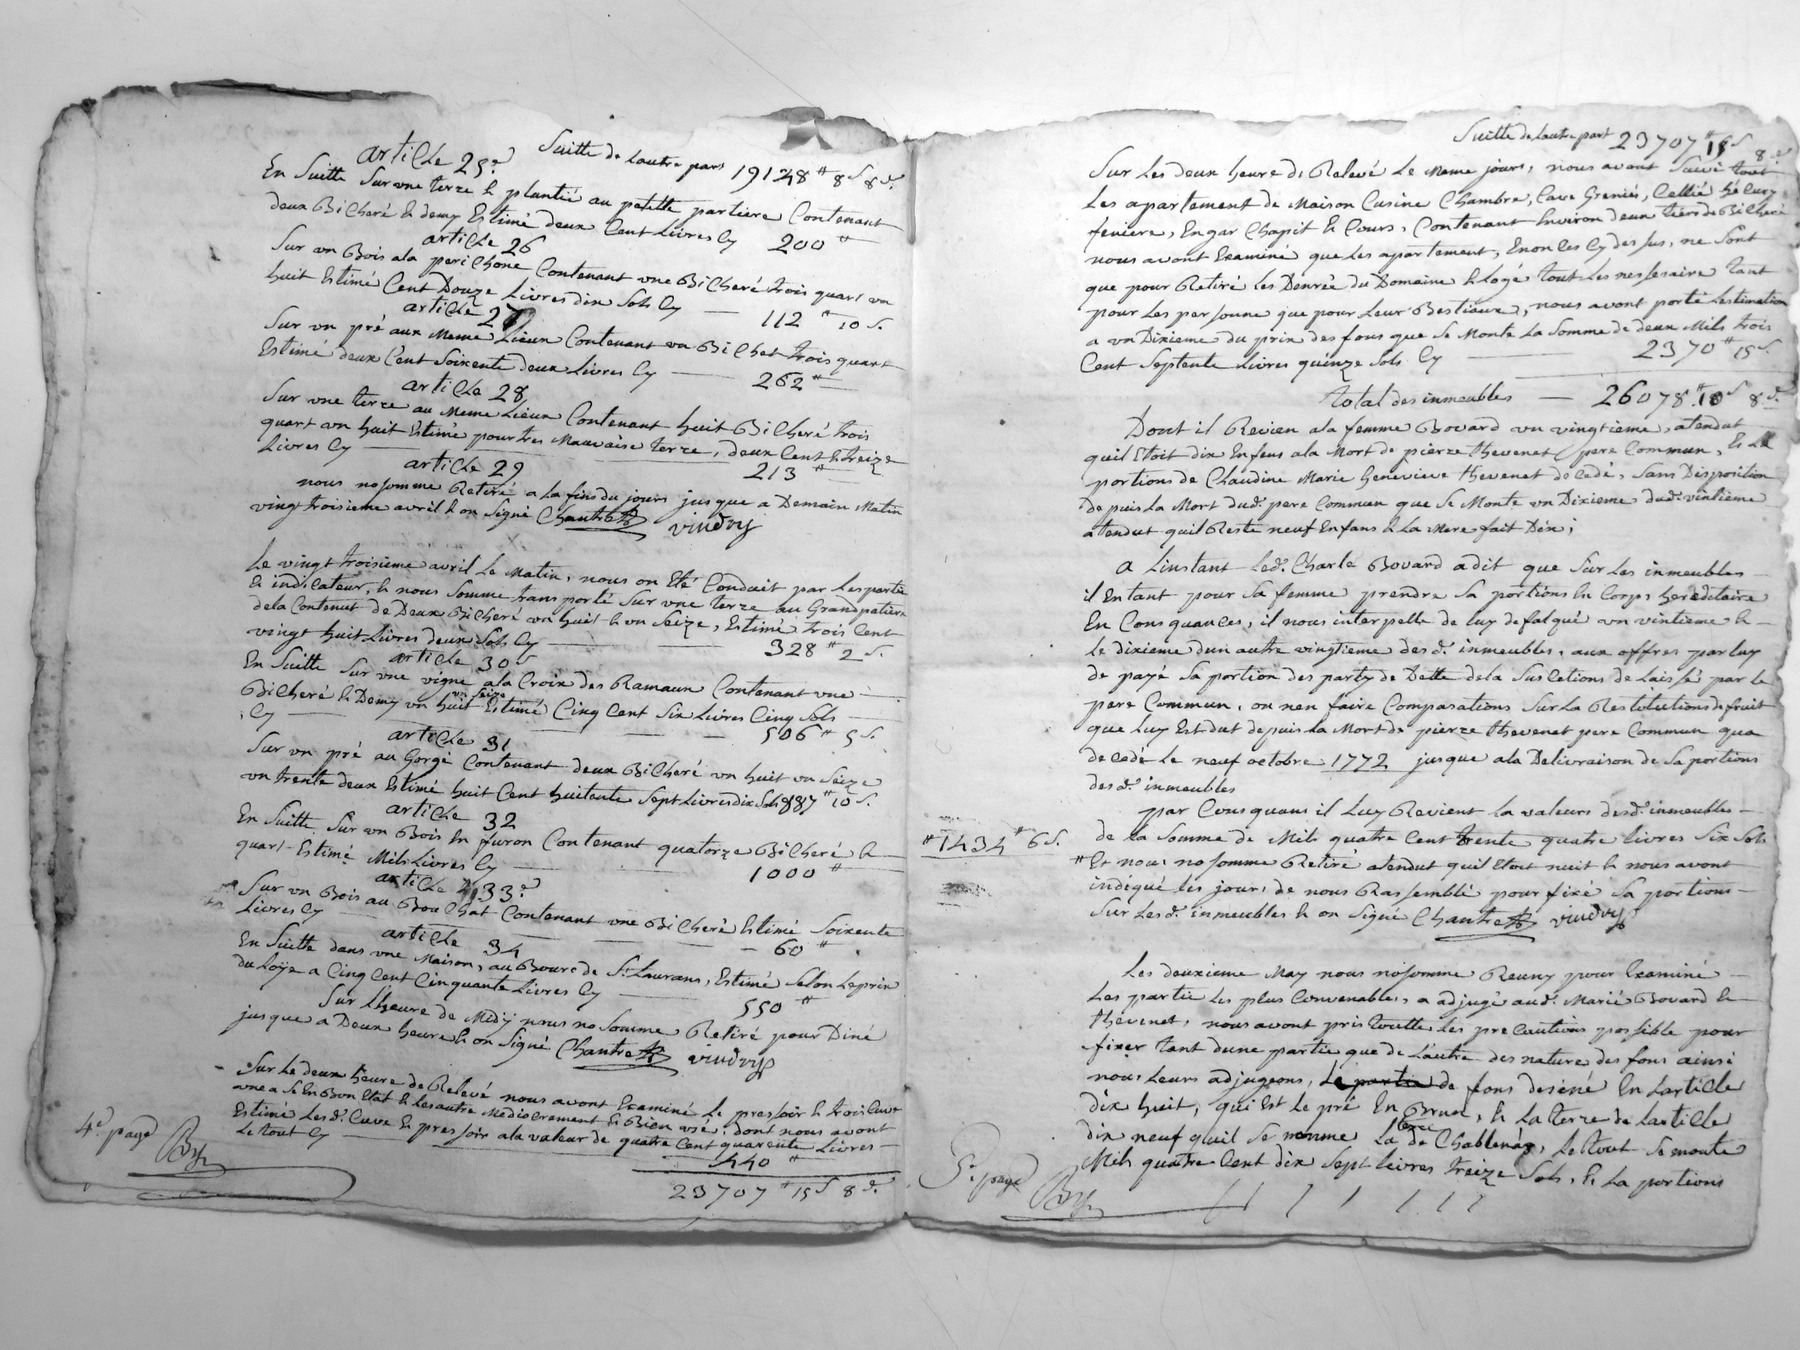 Suitte de lautre part 19148 # 8 s 8 d.
article 25e
En Suitte Sur une terre & plantié au petitte partiere Contenant
deux Bicheré & demy Estimé deux Cent Livres Cy 200 #
article 26
Sur un Bois ala perichone Contenant une Bicheré trois quart un
huit Estimé Cent Douze Livres dix Sols Cy — 112 # 10 s.
article 27
Sur un pré aux Meme Lieux Contenant un Bichet trois quart
Estimé deux Cent Soixente deux Livres Cy — 262 #
article 28
Sur une terre au Meme Lieux Contenant huit Bicheré trois
quart un huit Estimé pour tres Mauvaise terre, deux Cent & treize
Livres Cy — 213 #
article 29
nous nosomme Retiré a la fin du jours jusque a Demain Matin
vingt troisieme avril & on Signé Chantre vindry
Le vingt troisieme avril Le Matin, nous on Eté Conduit par Les partie
& indicateur, & nous Somme transporté Sur une terre au Grand patiere
dela Contenut de Deux Bicheré un huit & un Seize, Estimé trois Cent
vingt huit Livres deux Sols Cy — 328 # 2 s.
article 30
En Suitte Sur une vigne ala Croix des Ramaux Contenant une —
Bicheré & Demy un huit un Seize Estimé Cinq Cent Six Livres Cinq Sols —
Cy — 506 # 5 s.
article 31
Sur un pré au Gorge Contenant deux Bicheré un huit un Seize
un trente deux Estimé huit Cent huitente Sept Livres dix Sols 887 # 10 s.
article 32
En Suitte Sur un Bois En furon Contenant quatorze Bicheré &
quart Estimé Mils Livres Cy — 1000 #
article 33e
Sur un Bois au Bouchat Contenant une Bicheré Estimé Soixente
Livres Cy — 60 #
article 34
En Suitte dans une Maison, au Bourc de St Laurans, Estimé Selon Le prix
du Loÿe a Cinq Cent Cinquante Livres Cy — 550 #
Sur Lheure de Midÿ nous no Somme Retiré pour Diné
jusque a Deux heure & on Signé Chantre vindry
Sur Le deux heure de Relevé nous avont Examiné Le pressoir & trois Cuve
une a Se En Bon Etat & Les autre Mediocrement & Bien usé, dont nous avont
Estimé Les d. Cuve & pressoir ala valeur de quatre Cent quarente Livres —
Le tout Cy — 440 #
23707 # 15 s 8 d.
4e page
Suitte de Lautre part 23707 # 15 s 8 d
Sur Les deux heure de Relevé Le Meme jours, nous avont Suivi tout
Les apartement de Maison Cusine Chambre, Cave Greniés, Cellié hécury
feniere, Engar Chapit & Cours, Contenant Environ deux tiers de Bicheré
nous avont Examiné que Les apartement, Enonces Cy des sus, ne Sont
que pour Retiré Les Denrée du Domaine & Logé tout Les nessesaire tant
pour Les personne que pour Leur Bestiaux, nous avont porté Lestimation
a un Dixieme du prix des fons que Se Monte La Somme de deux Mils trois
Cent Septente Livres quinze Sols Cy — 2370 # 15 s.
total des inmeubles — 26078 # 10 s 8 d.
Dout il Revien ala femme Bovard un vingtieme, atendut
quil Etoit dix Enfens ala Mort de pierre thevenet pere Commun, Et La
portions de Claudine Marie Genevieve thevenet décedé, Sans Disposition
Depuis La Mort dud. pere Commun que Se Monte un Dixieme dud. vintieme
atendut quil Reste neuf Enfans & La Mere fait Dix;
A Linstant Led. Charle Bovard a dit que Sur Les inmeubles —
il Entant pour Sa femme prendre Sa portions En Corps hereditaire
En Consquances, il nous interpelle de Luy defalqué un vintieme &
Le dixieme dun autre vingtieme des d. inmeubles, aux offres par Luy
de payé Sa portion des party de Dette de la Suscetions de Laissé par Le
pere Commun, ou nen faire Compasations Sur La Restitutions de fruit
que Luy Est dut depuis La Mort de pierre thevenet pere Commun qua
decedé Le neuf octobre 1772 jusque ala Delivraison de Sa portions
des d. inmeubles
par Consquans il Luy Revient La valeurs des d. inmeubles —
# 1434 # 6 s.
de La Somme de Mils quatre Cent trente quatre Livres Six Sols
# Et nous nosomme Retiré atendut quil Etoit nuit & nous avont
indéqué Les jours de nous Rassemblé pour fixé Sa portions —
Sur Les d. inmeubles & on Signé Chantre vindry
Les deuxieme May nous nosomme Reuny pour Examiné —
Les partie Les plus Convenables, a adjugé aud. Marié Bovard &
thevenet, nous avont pris toutte Les precautions possible pour
fixer tant dune partie que de Lautre des nature des fons ainsi
nous Leurs adjugeons, Le partie de fons desiné En Larticle
dix huit, qui Est Le pré En Brun, & La terre de Larticle
dix neuf quil Se nomme La terre de Chablenas, Le tout Se monte
Mils quatre Cent dix Sept Livres treize Sols, & La portions
5e page